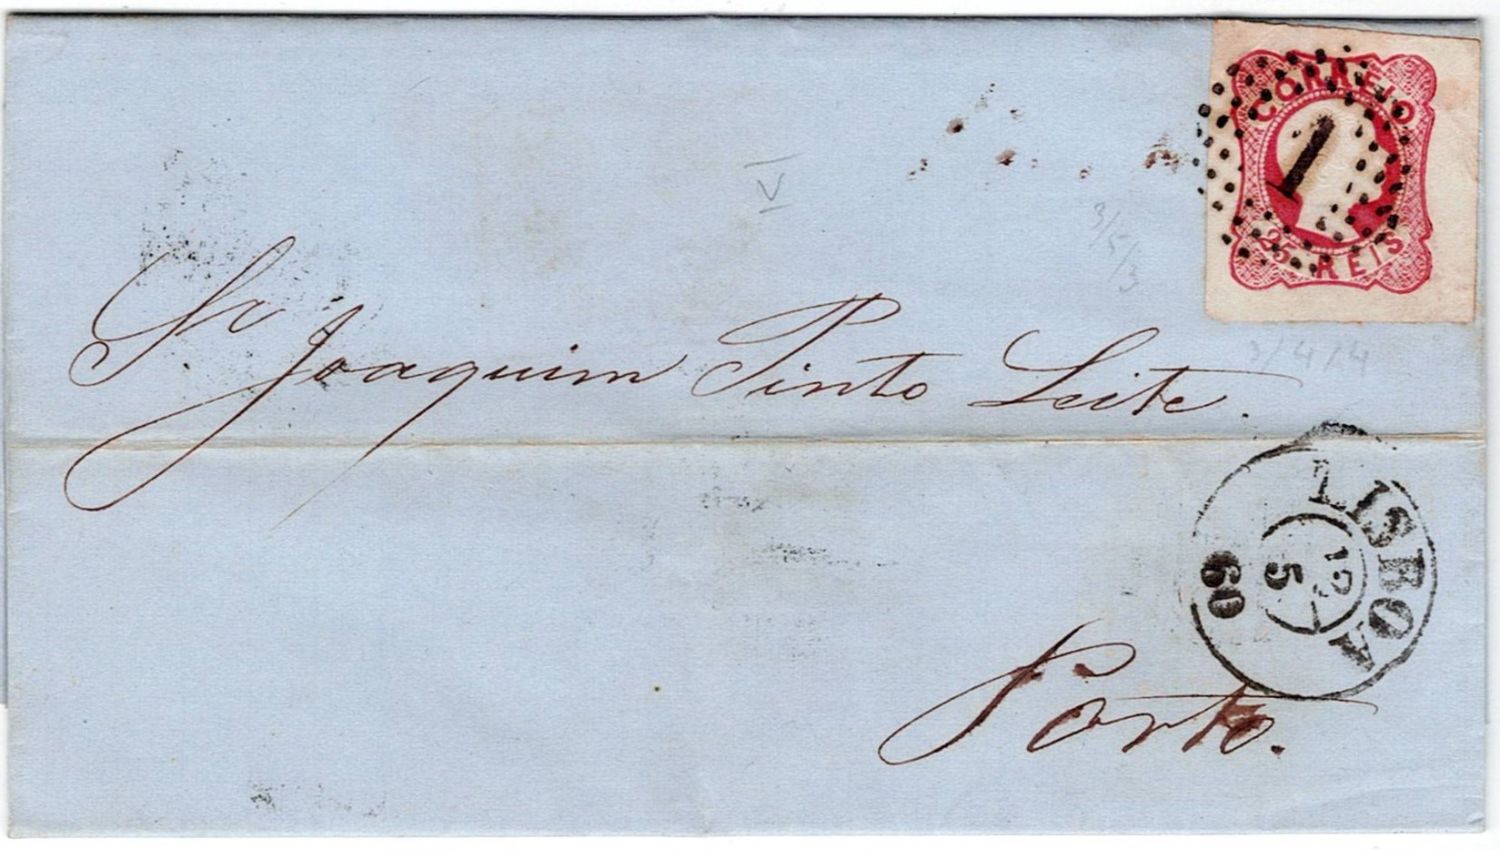 CORREIO
1
25 REIS
V
3/5/3
3/4/4
Sr Joaquim Pinto Leite.
LISBOA
12
5
60
Porto.